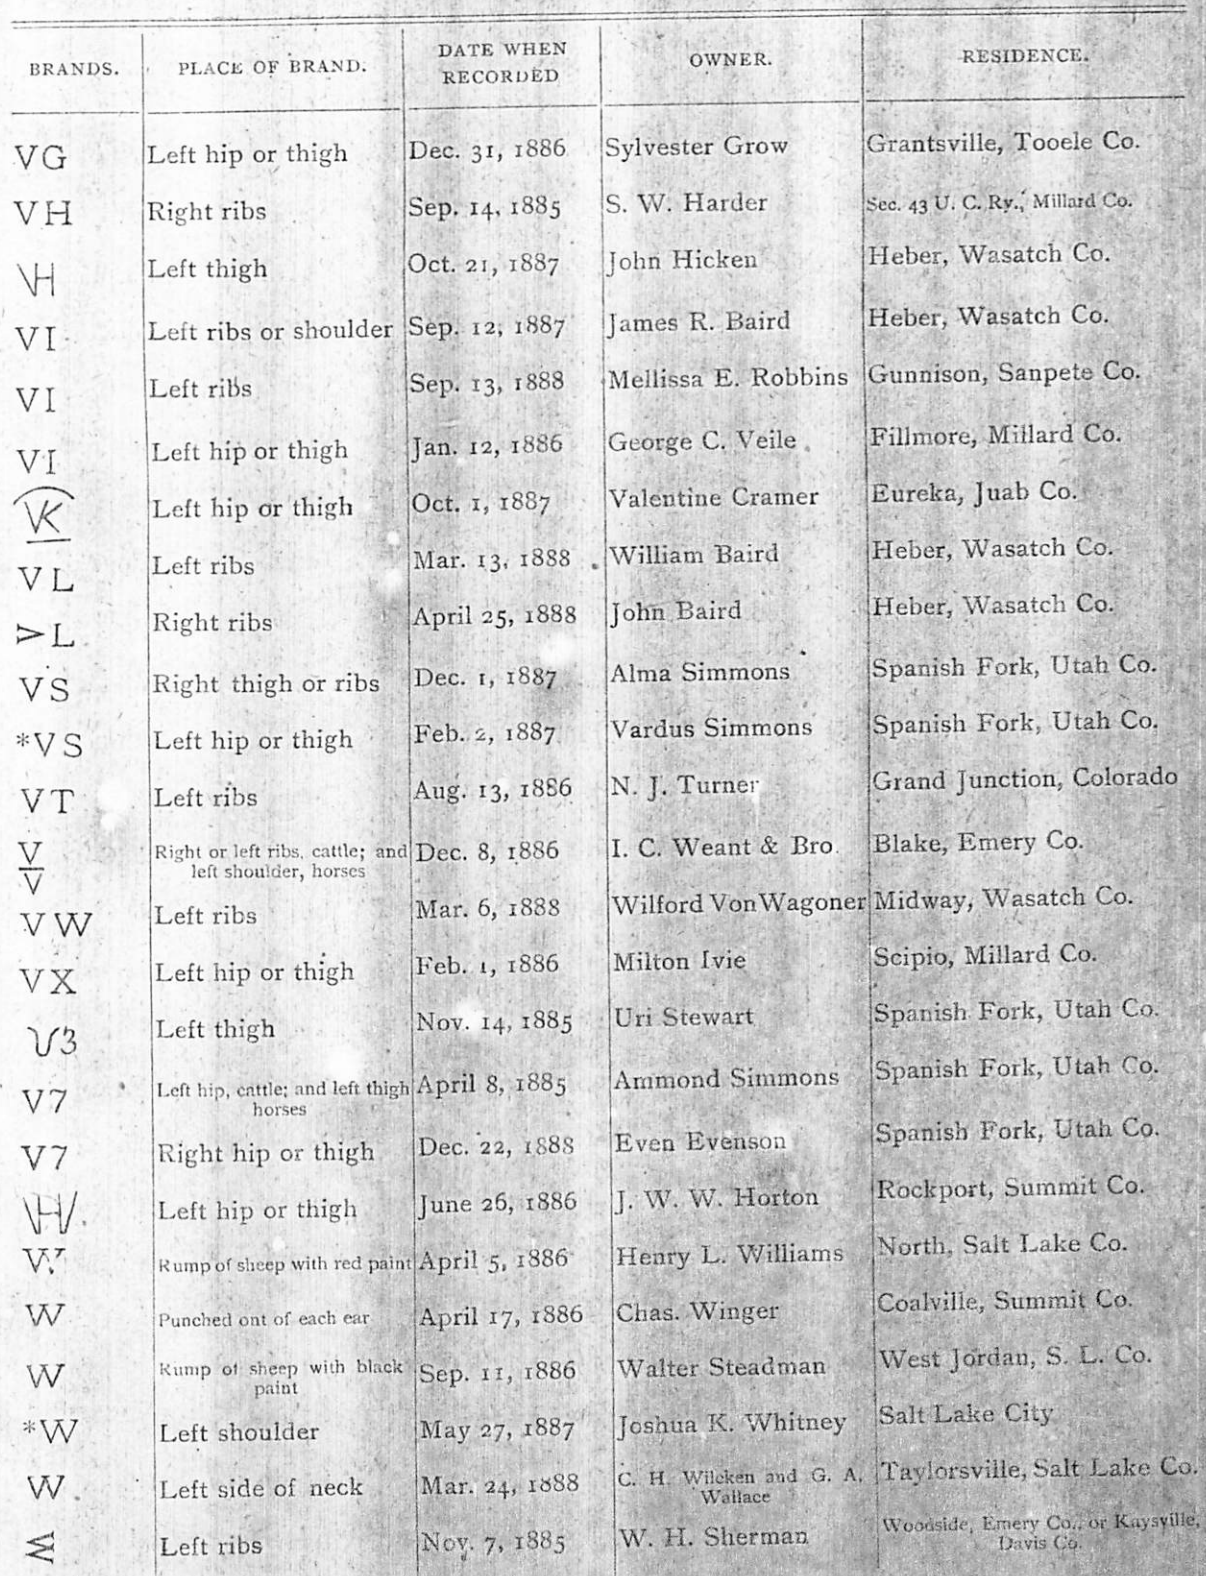 BRANDS. PLACE OF BRAND. DATE WHEN RECORDED OWNER. RESIDENCE.
VG Left hip or thigh Dec. 31, 1886 Sylvester Grow Grantsville, Tooele Co.
VH Right ribs Sep. 14, 1885 S. W. Harder Sec. 43 U. C. Ry., Millard Co.
VH Left thigh Oct. 21, 1887 John Hicken Heber, Wasatch Co.
VI Left ribs or shoulder Sep. 12, 1887 James R. Baird Heber, Wasatch Co.
VI Left ribs Sep. 13, 1888 Mellissa E. Robbins Gunnison, Sanpete Co.
VI Left hip or thigh Jan. 12, 1886 George C. Veile Fillmore, Millard Co.
VK Left hip or thigh Oct. 1, 1887 Valentine Cramer Eureka, Juab Co.
VL Left ribs Mar. 13, 1888 William Baird Heber, Wasatch Co.
>L Right ribs April 25, 1888 John Baird Heber, Wasatch Co.
VS Right thigh or ribs Dec. 1, 1887 Alma Simmons Spanish Fork, Utah Co.
*VS Left hip or thigh Feb. 2, 1887 Vardus Simmons Spanish Fork, Utah Co.
VT Left ribs Aug. 13, 1886 N. J. Turner Grand Junction, Colorado
V Right or left ribs, cattle; and Dec. 8, 1886 I. C. Weant & Bro. Blake, Emery Co.
V left shoulder, horses
VW Left ribs Mar. 6, 1888 Wilford VonWagoner Midway, Wasatch Co.
VX Left hip or thigh Feb. 1, 1886 Milton Ivie Scipio, Millard Co.
V3 Left thigh Nov. 14, 1885 Uri Stewart Spanish Fork, Utah Co.
V7 Left hip, cattle; and left thigh April 8, 1885 Ammond Simmons Spanish Fork, Utah Co.
horses
V7 Right hip or thigh Dec. 22, 1888 Even Evenson Spanish Fork, Utah Co.
\H/ Left hip or thigh June 26, 1886 J. W. W. Horton Rockport, Summit Co.
W Rump of sheep with red paint April 5, 1886 Henry L. Williams North, Salt Lake Co.
W Punched ont of each ear April 17, 1886 Chas. Winger Coalville, Summit Co.
W Rump of sheep with black Sep. 11, 1886 Walter Steadman West Jordan, S. L. Co.
paint
*W Left shoulder May 27, 1887 Joshua K. Whitney Salt Lake City
W Left side of neck Mar. 24, 1888 C. H. Wilcken and G. A. Taylorsville, Salt Lake Co.
Wallace
Left ribs Nov. 7, 1885 W. H. Sherman Woodside, Emery Co., or Kaysville,
Davis Co.